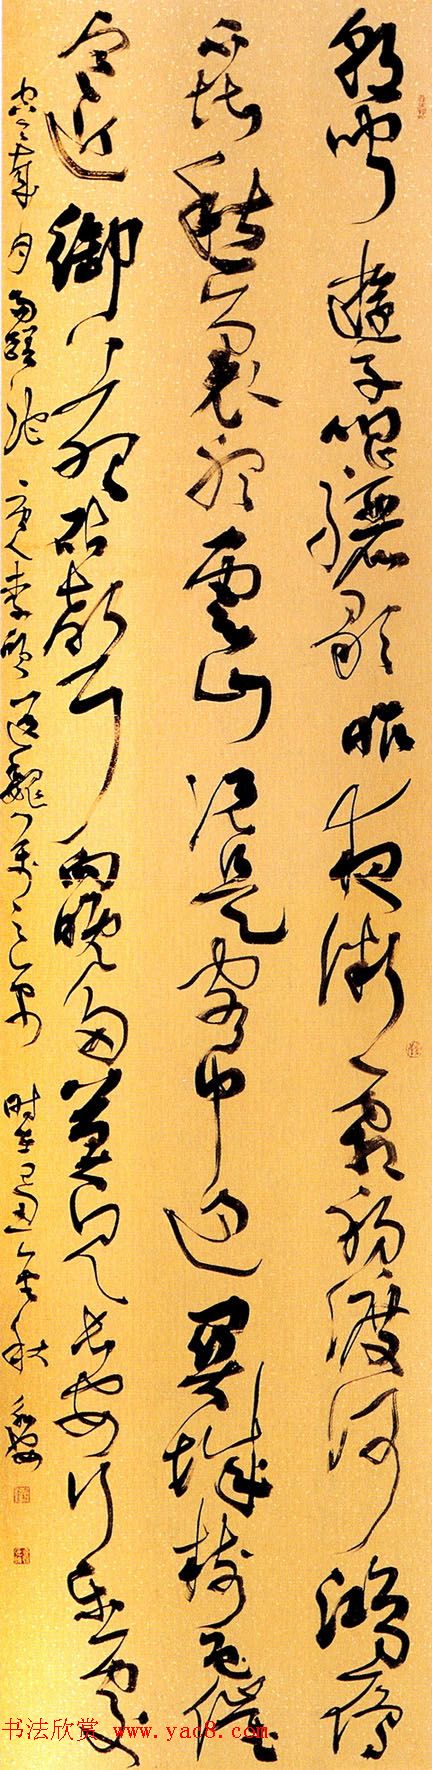 朝聞遊子唱驪歌昨夜微霜初渡河鴻雁
不堪愁裏聽雲山況是客中過關城樹色催
寒近御苑砧聲向晚多莫見長安行樂處
空令歲月易蹉跎 唐人李頎送魏萬之京 时在己丑金秋
书法欣赏 www.yac8.com